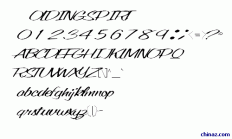 OLDINGSPIRIT
0123456789
ABCDEFGHIJKLMNOPQ
RSTUVWXYZ
abcdefghijklmnop
qrstuvwxyz
chinaz.com